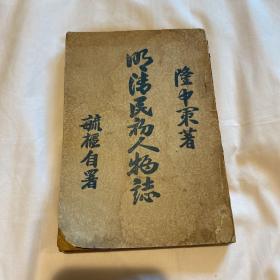 隆中著
明清民初人物誌
毓自署